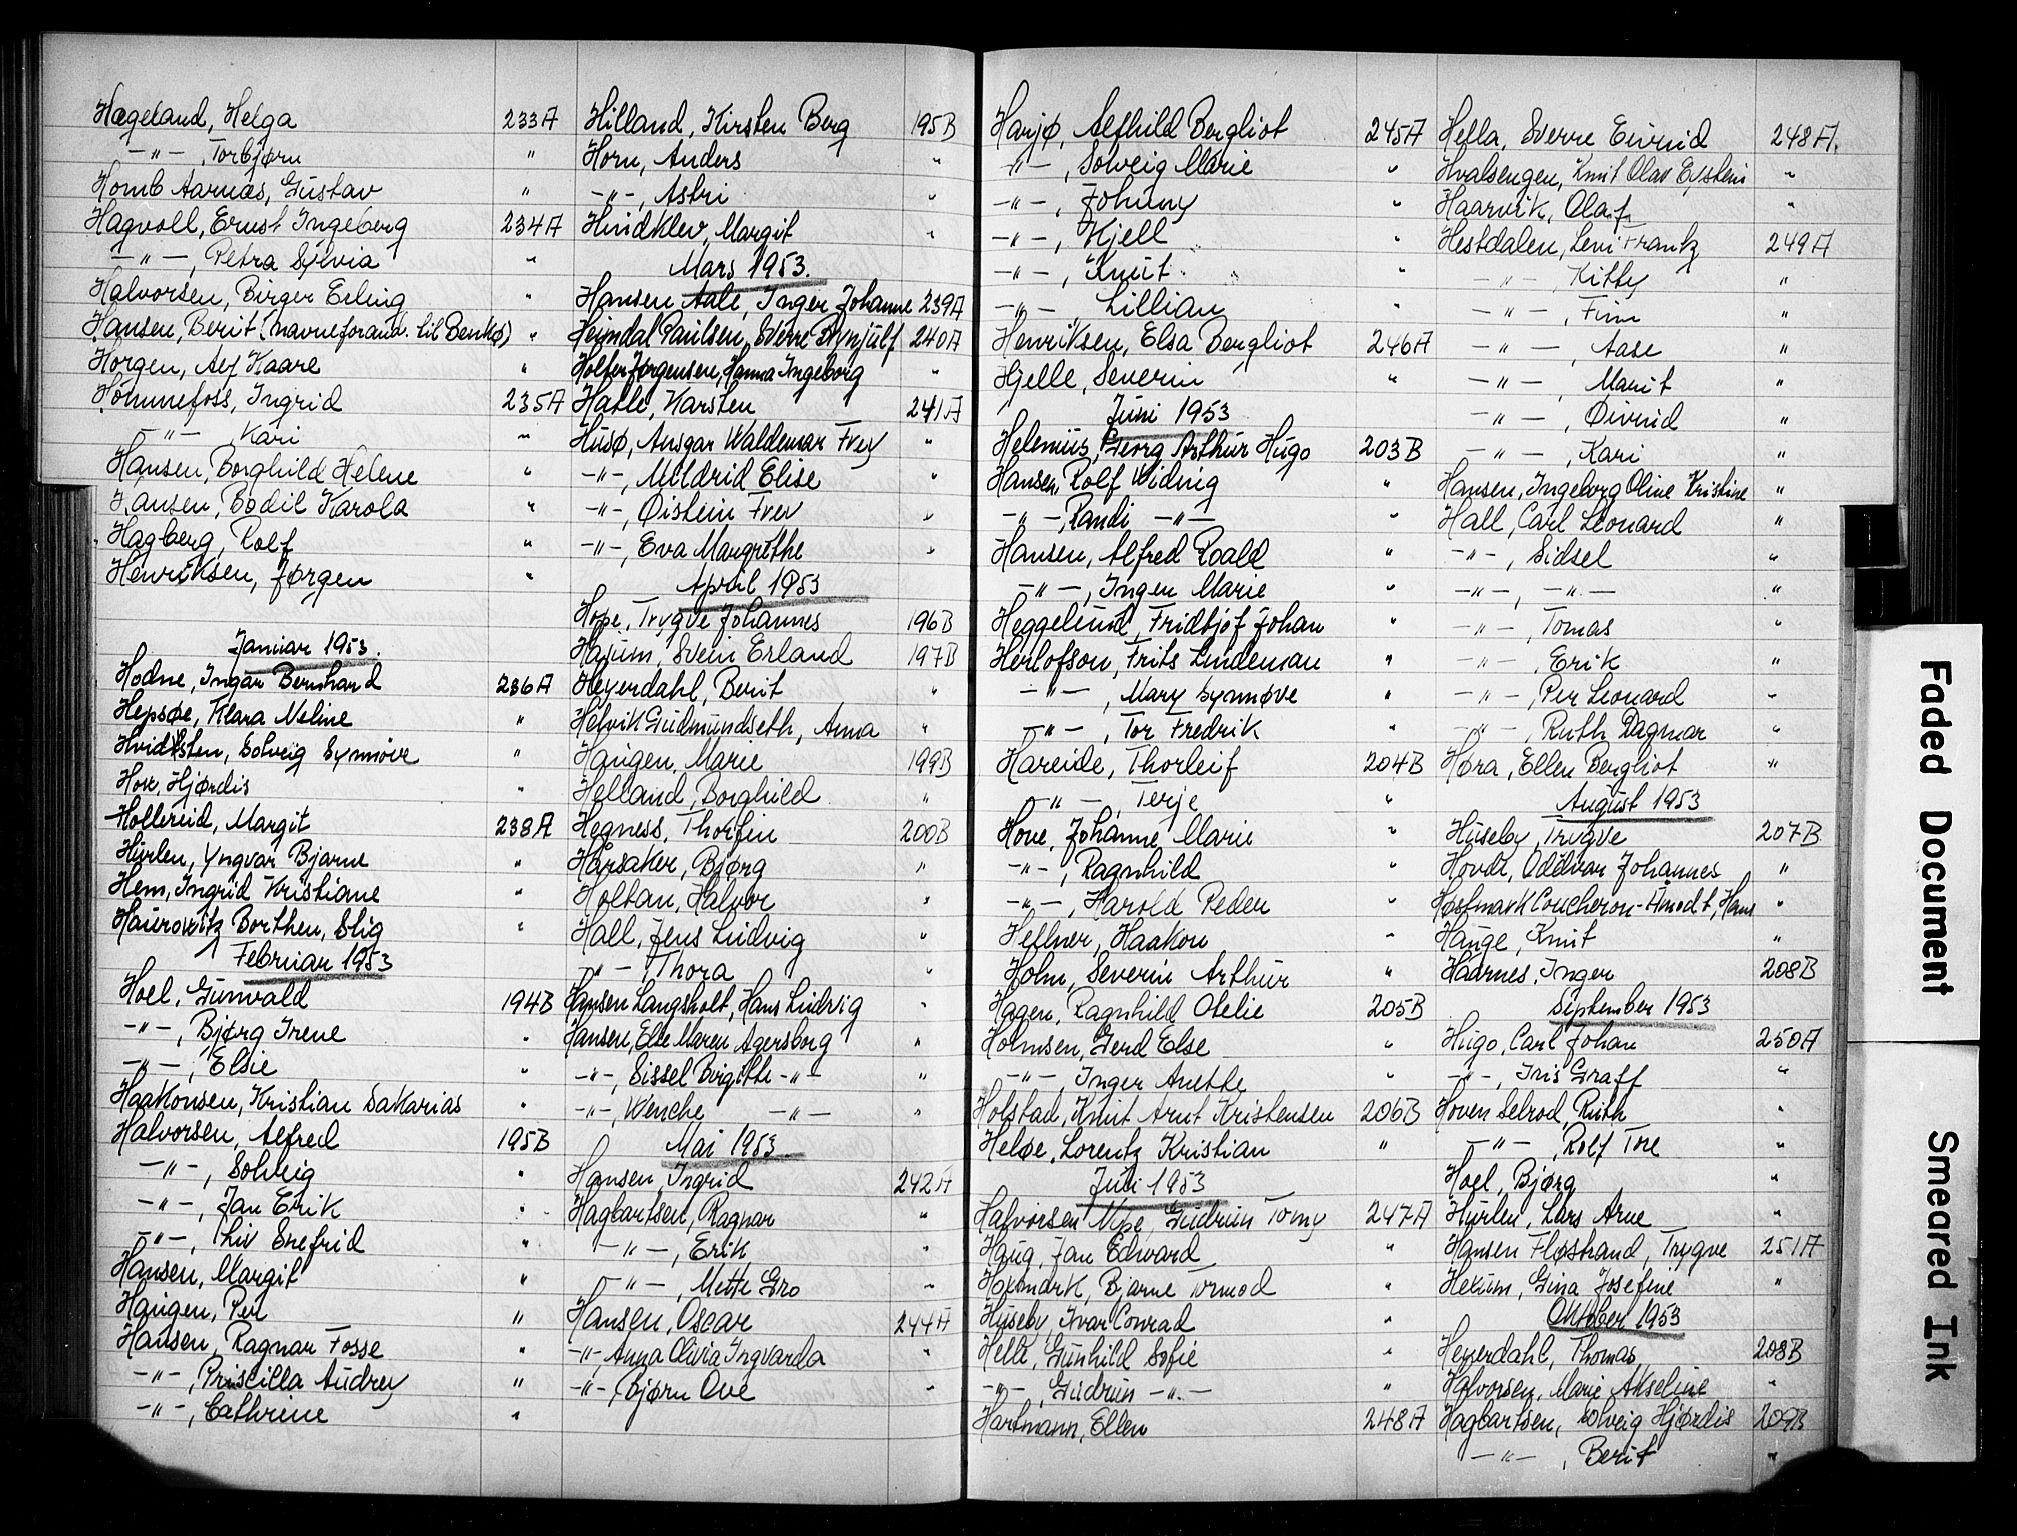 Hægeland, Helga 233A
-"-, Torbjørn "
Homb Aarnæs, Gustav "
Hagvoll, Ernst Ingeberg 234A
-"-, Petra Sylvia "
Halvorsen, Birger Erling "
Hansen, Berit (navneforand. til Benkø) "
Horgen, Alf Kaare "
Hommefoss, Ingrid 235A
-"-, Kari "
Hansen, Borghild Helene "
Hansen, Bodil Karola "
Hagberg, Rolf "
Henriksen, Jørgen "
Januar 1953.
Hodne, Ingar Bernhard 236A
Hepsøe, Klara Meline "
Hvidsten, Solveig Synnøve "
Hox, Hjørdis "
Hollereid, Margit 238A
Hurlen, Yngvar Bjarne "
Hem, Ingrid Kristiane "
Haurowitz Borthen, Stig "
Februar 1953
Hoel, Gunvald 194B
-"-, Bjørg Irene "
-"-, Elsie "
Haakonsen, Kristian Sakarias "
Halvorsen, Alfred 195B
-"-, Solveig "
-"-, Jan Erik "
-"-, Liv Snefrid "
Hansen, Margit "
Haugen, Per "
Hansen, Ragnar Fosse "
-"-, Priscilla Audrey "
-"-, Cathrine "
Hilland, Kirsten Berg 195B
Horn, Anders "
-"-, Astri "
Hindklev, Margit "
Mars 1953.
Hansen Aale, Inger Johanne 239A
Heimdal Paulsen, Sverre Brynjulf 240A
Holter Jørgensen, Hanna Ingeborg "
Hatle, Karsten 241A
Husø, Ansgar Waldemar Frey "
-"-, Mildrid Elise "
-"-, Øistein Frey "
-"-, Eva Margrethe "
April 1953
Hope, Trygve Johannes 196B
Hajum, Svein Erland 197B
Heyerdahl, Berit "
Helvik Gudmundseth, Anna "
Haugen, Marie 199B
Helland, Borghild "
Hegness, Thorfin 200B
Hårsaker, Bjørg "
Holtan, Halvor "
Hall, Jens Ludvig "
-"-, Thora "
Hansen Langsholt, Hans Ludvig "
Hansen, Else Maren Agersborg "
-"-, Sissel Birgitte -"- "
-"-, Wenche -"- "
Mai 1953
Hansen, Ingrid 242A
Hagbartsen, Ragnar "
-"-, Erik "
-"-, Mette Gro "
Hansen, Oscar 244A
-"-, Anna Olivia Ingvarda "
-"-, Bjørn Ove "
Harjø, Alfhild Bergliot 245A
-"-, Solveig Marie "
-"-, Johnny "
-"-, Kjell "
-"-, Knut "
-"-, Lillian "
Henriksen, Elsa Bergliot 246A
Hjelle, Severin "
Juni 1953
Helenius, Georg Arthur Hugo 203B
Hansen, Rolf Widing "
-"-, Randi -"- "
Hansen, Alfred Roald "
-"-, Inger Marie "
Heggelund, Fridtjof Johan "
Herlofson, Frits Lindeman "
-"-, Mary Synnøve "
-"-, Tor Fredrik "
Hareide, Thorleif 204B
-"-, Terje "
Hove, Johanne Marie "
-"-, Ragnhild "
-"-, Harold Peder "
Hellner, Haakon "
Holm, Severin Arthur "
Hagen, Ragnhild Otelie 205B
Holmsen, Gerd Else "
-"-, Inger Anette "
Holstad, Knut Arnt Kristensen 206B
Heløe, Lorentz Kristian "
Juli 1953
Halvorsen Moe, Gudrun Tomy 247A
Haug, Jan Edward "
Hoxmark, Bjarne Tormod "
Huseby, Ivar Conrad "
Helle, Gunhild Sofie "
-"-, Gudrun -"- "
Hartmann, Ellen 248A
Hella, Sverre Eivind 248A.
Hvalsengen, Knut Olav Eystein "
Haarvik, Olaf "
Hestdalen, Levi Frantz 249A
-"-, Kitty "
-"-, Finn "
-"-, Aase "
-"-, Marit "
-"-, Øivind "
-"-, Kari "
Hansen, Ingeborg Oline Kristine "
Hall, Carl Leonard "
-"-, Sidsel "
-"-, -"- "
-"-, Tomas "
-"-, Erik "
-"-, Per Leonard "
-"-, Ruth Dagmar "
Høra, Ellen Bergliot "
August 1953
Huseby, Trygve 207B
Hovde, Oddvar Johannes "
Høstmark Coucheron-Åmodt, Hans "
Hauge, Knut "
Haarnes, Inger 208B
September 1953
Hugo, Carl Johan 250A
-"-, Iris Graff "
Hoven Selrod, Ruth "
-"-, Rolf Tore "
Hoel, Bjørg "
Hurlen, Lars Arne "
Hansen Fløstrand, Trygve 251A
Hexum, Gina Josefine "
Oktober 1953
Heyerdahl, Thomas 208B
Halvorsen, Marie Akseline "
Hagbartsen, Solveig Hjørdis 209B
-"-, Berit "
Faded Document
Smeared Ink